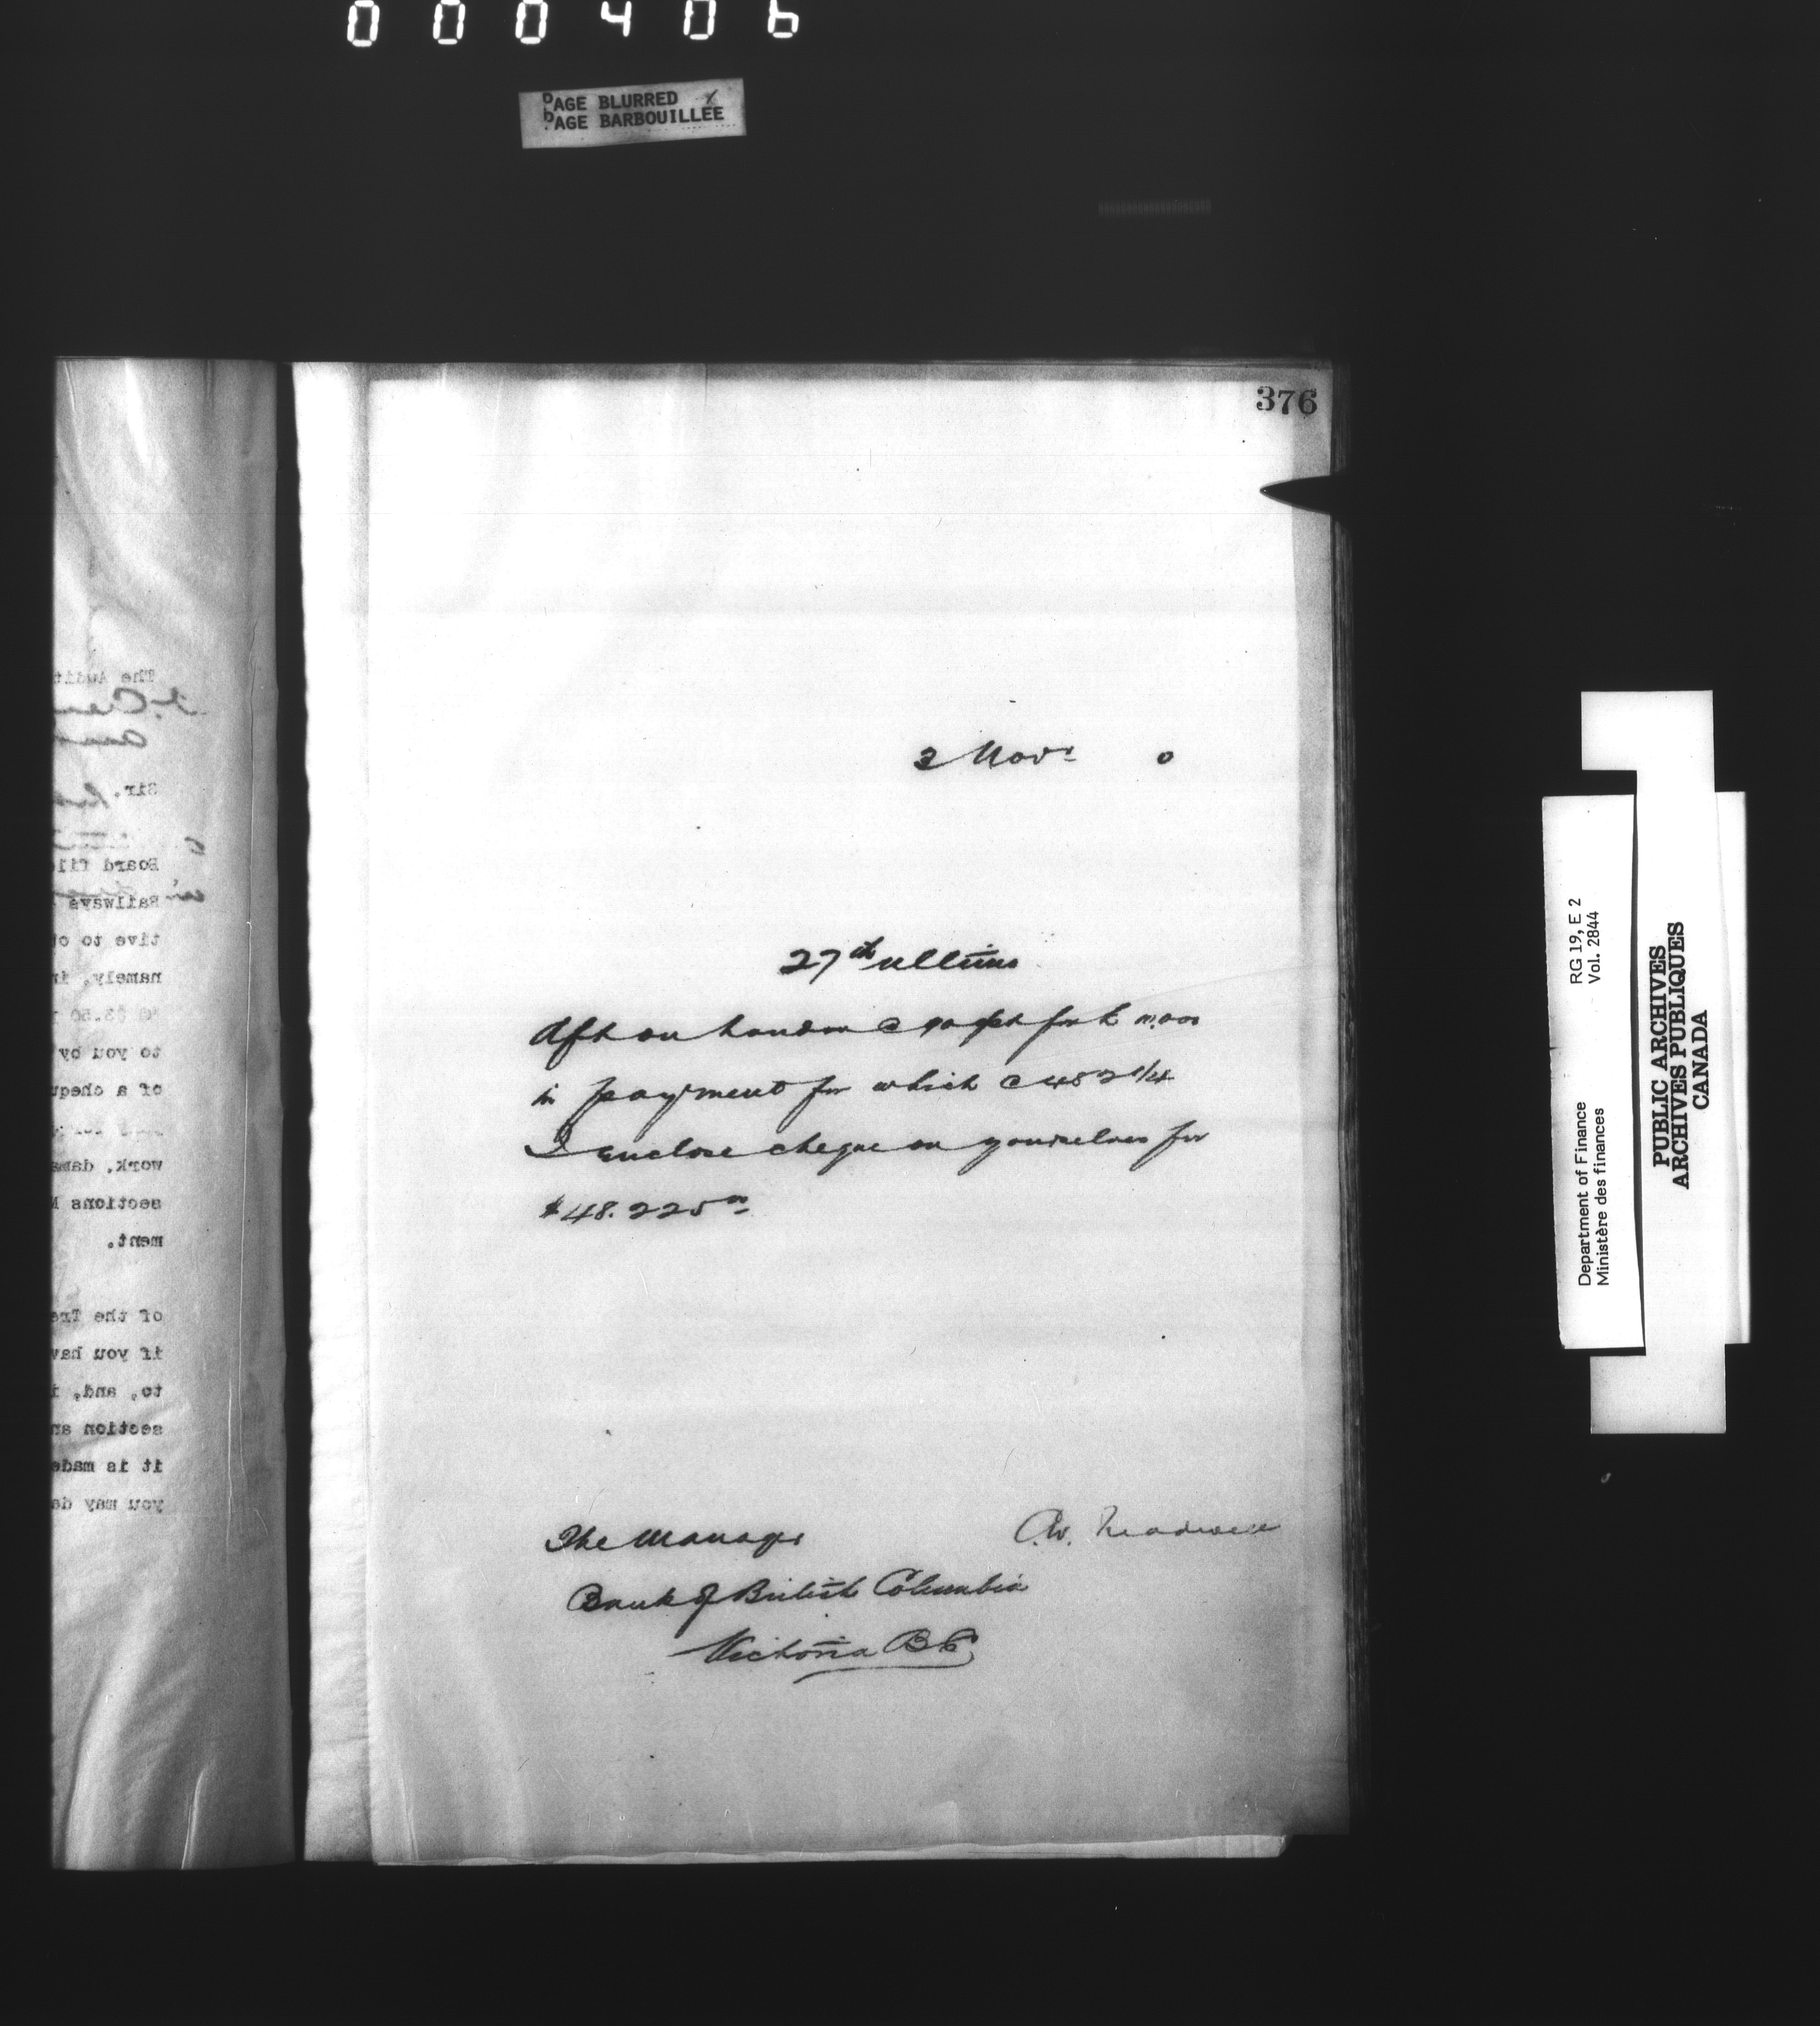 000406
PAGE BLURRED
PAGE BARBOUILLÉE
376
The Audit
Sir.
Board fil
Railways
tive to o
namely, i
$3.50
to you by
of a chequ
work, dama
sections N
ment.
of the Tre
if you hav
to, and, i
section an
it is made
you may de
2 Novr 0
27th ultimo
dft on London @ 90 for £
in payment for which @ 482 1/4
I enclose cheque on yourselves for
$48.225 00
The Manager
Bank of British Columbia
Victoria BC
RG 19, E 2
Vol. 2844
Department of Finance
Ministère des finances
PUBLIC ARCHIVES
ARCHIVES PUBLIQUES
CANADA